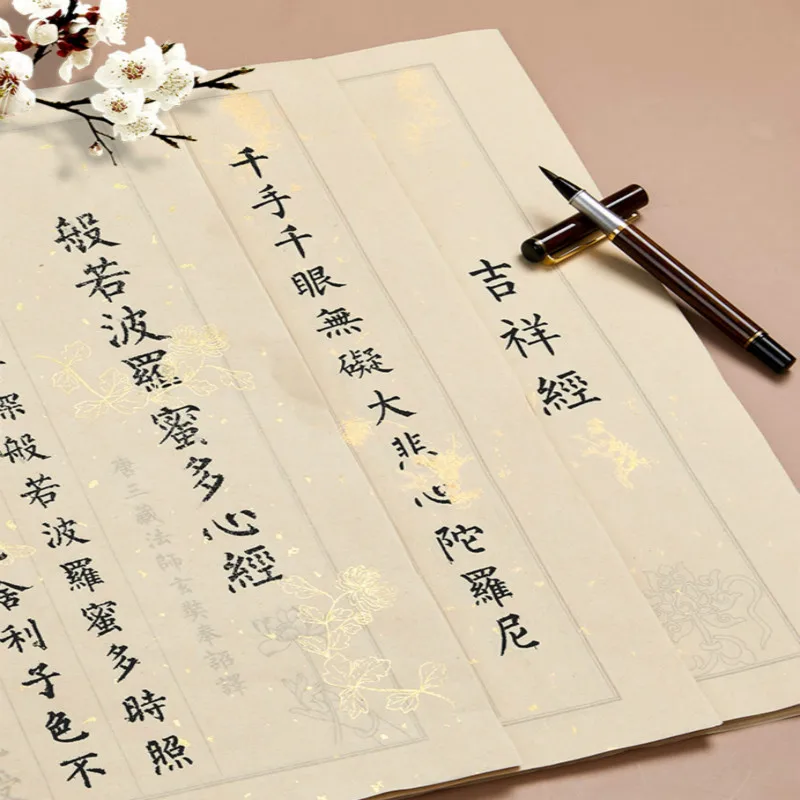 吉祥經
千手千眼無礙大悲心陀羅尼
般若波羅蜜多心經
唐三藏法師玄奘奉詔譯
深般若波羅蜜多時照
舍利子色不